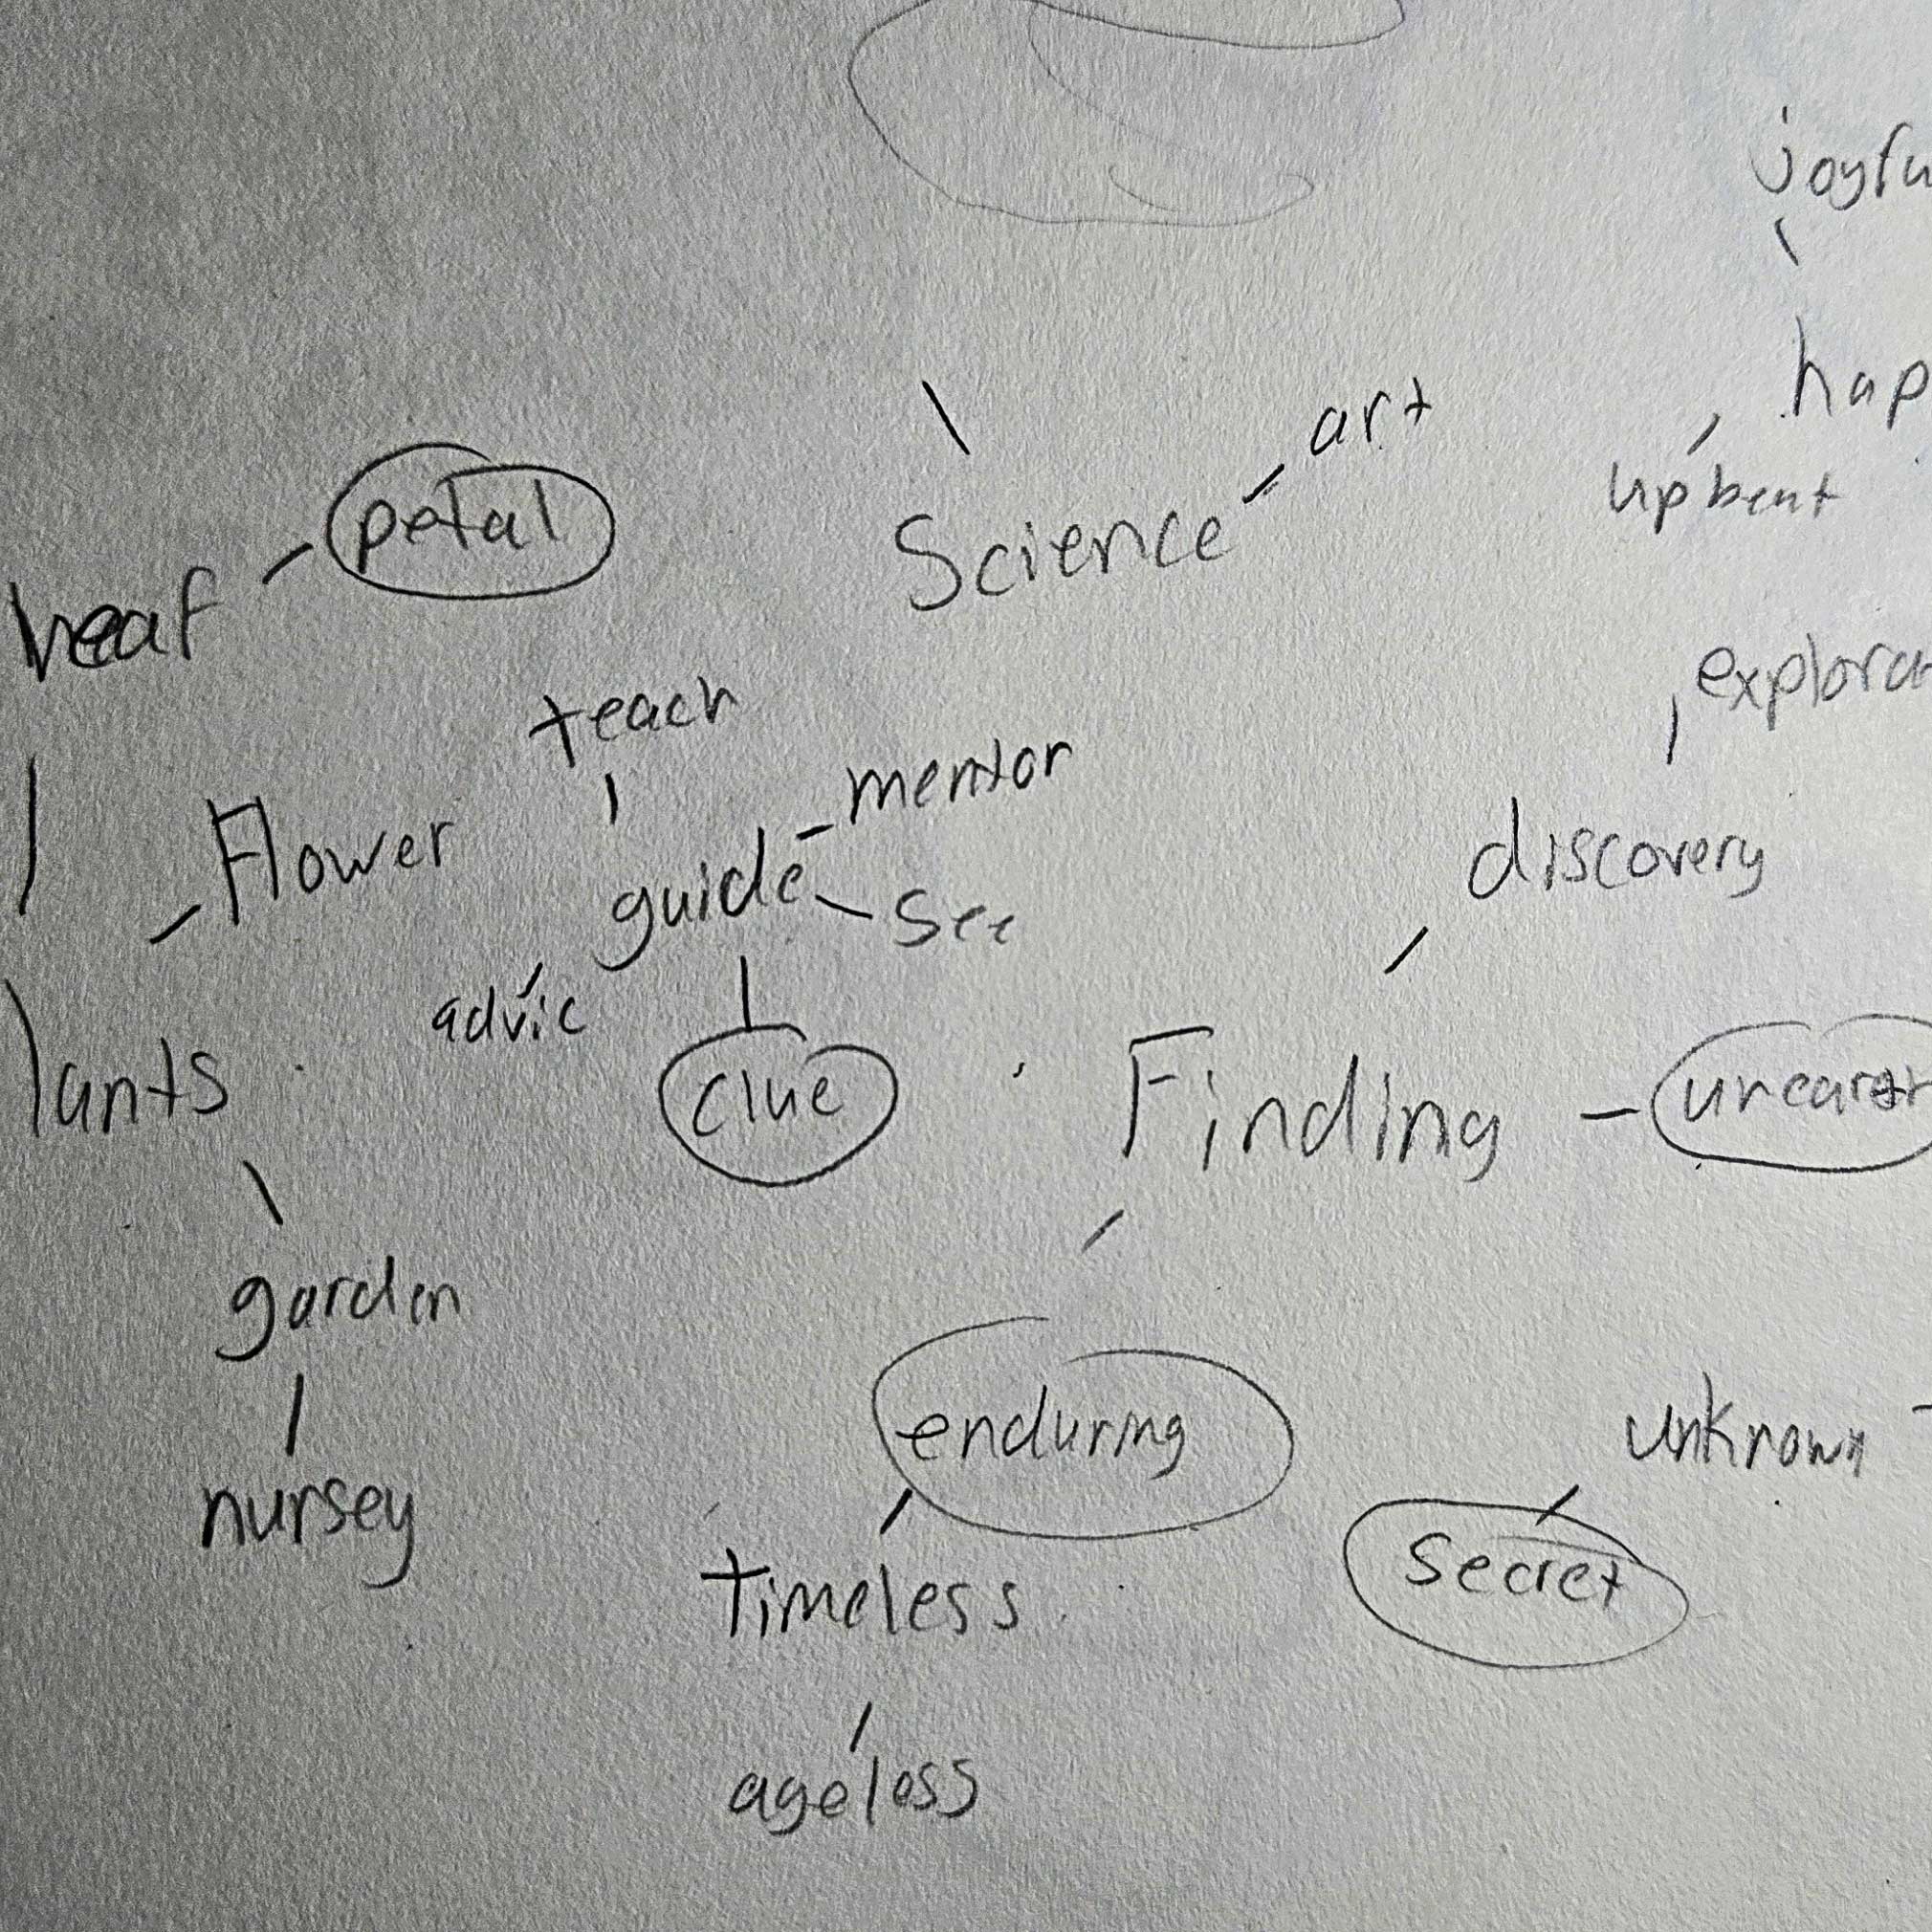 joyfu
hap
art
upbeat
petal
Science
leaf
explora
teach
mentor
Flower
discovery
guide
see
advic
lants
clue
Finding
unearth
garden
enduring
unknown
nursey
secret
timeless
ageless